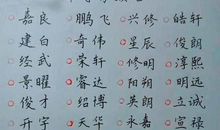 嘉良 鹏飞 兴修 皓轩
建白 奇伟 星辰 俊朗
经武 荣轩 修明 淳熙
景曜 睿达 阳朔 明远
俊才 绍博 英朗 立诚
开宇 天华 永嘉 宜穰